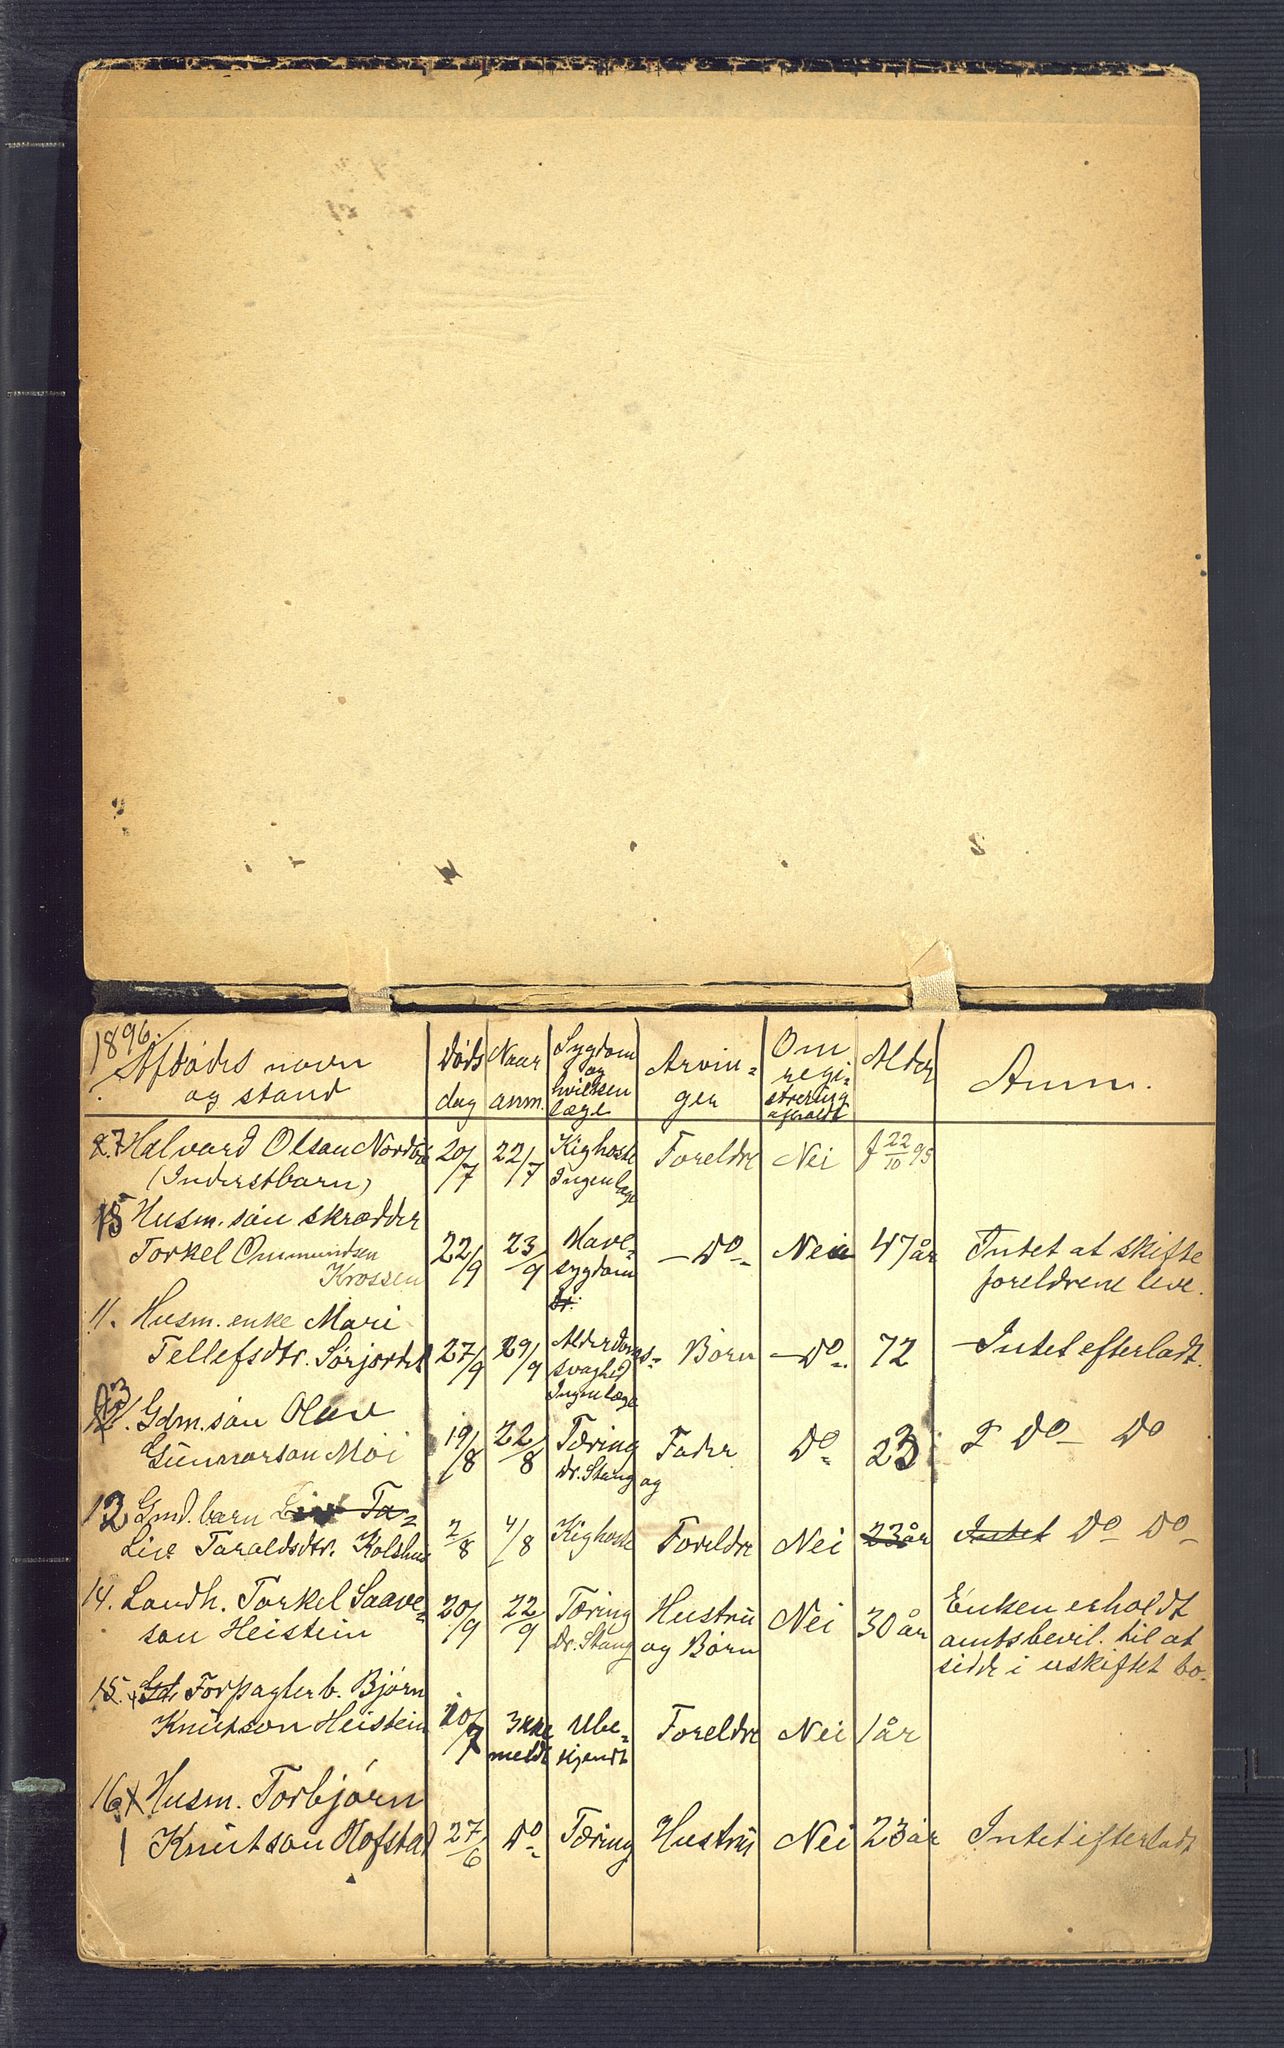 1896.
Afdødes navn
og stand
Døds
dag
Naar
anm.
Sygdom
og
hvilken
læge
Arvin-
ger
Om
regi-
strering
afholdt
Alder
Anm.
7 Halvard Olson
(Inderstbarn)
20/7
22/7
Kighoste
Ingen læge
Foreldre
Nei
f 22/10 95
15 Husm. søn skrædder
Torkel Ommundsen
Krossen
22/9
23/9
Mave-
sygdom
Dr.
— Do -
Nei
47 år
Intet at skifte
foreldrene leve.
11. Husm. enke Mari
Tellefsdtr. Sørjordet
27/9
29/9
Alderdoms-
svaghed
Ingen læge
Børn
— Do -
72
Intet efterladt.
Gdm. søn Olav
Gunnarson Moi
19/8
22/8
Tæring
Dr. Stang
Fader
og
Do -
23
Do — Do
13 Gmd. barn Liv Ta-
Live Taraldsdtr. Kolshus
2/8
4/8
Kighoste
Foreldre
Nei
23 år
Intet Do Do -
14. Landh. Torkel Saave-
son Heistein
20/9
22/9
Tæring
Dr. Stang
Hustru
og Børn
Nei
30 år
Enken erholdt
amtsbevil. til at
sidde i uskiftet bo.
15. Forpagter b. Bjørn
Knutson Heistein
20/7
Ikke
meldt
Ube-
kjendt
Foreldre
Nei
1 år
16 x Husm. Torbjørn
Knutson Hofstad
27/6
Do -
Tæring
Hustru
Nei
23 år
Intet efterladt